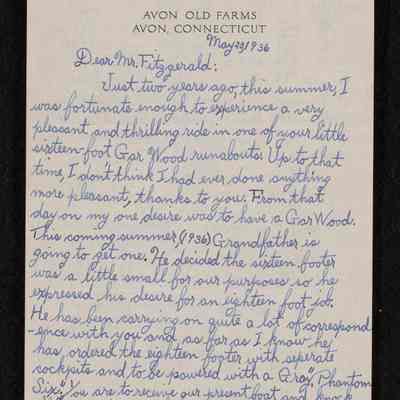 AVON OLD FARMS
AVON, CONNECTICUT
May 29, 1936
Dear Mr. Fitzgerald:
Just two years ago, this summer, I
was fortunate enough to experience a very
pleasant and thrilling ride in one of your little
sixteen-foot Gar Wood runabouts. Up to that
time, I don't think I had ever done anything
more pleasant, thanks to you. From that
day on my one desire was to have a Gar Wood.
This coming summer (1936) Grandfather is
going to get one. He decided the sixteen footer
was a little small for our purposes so he
expressed his desire for an eighteen foot job.
He has been carrying on quite a lot of correspond
-ence with you and as far as I know he
has ordered the eighteen footer with seperate
cockpits and to be powered with a Gray "Phantom
Six". You are to receive our present boat and knock